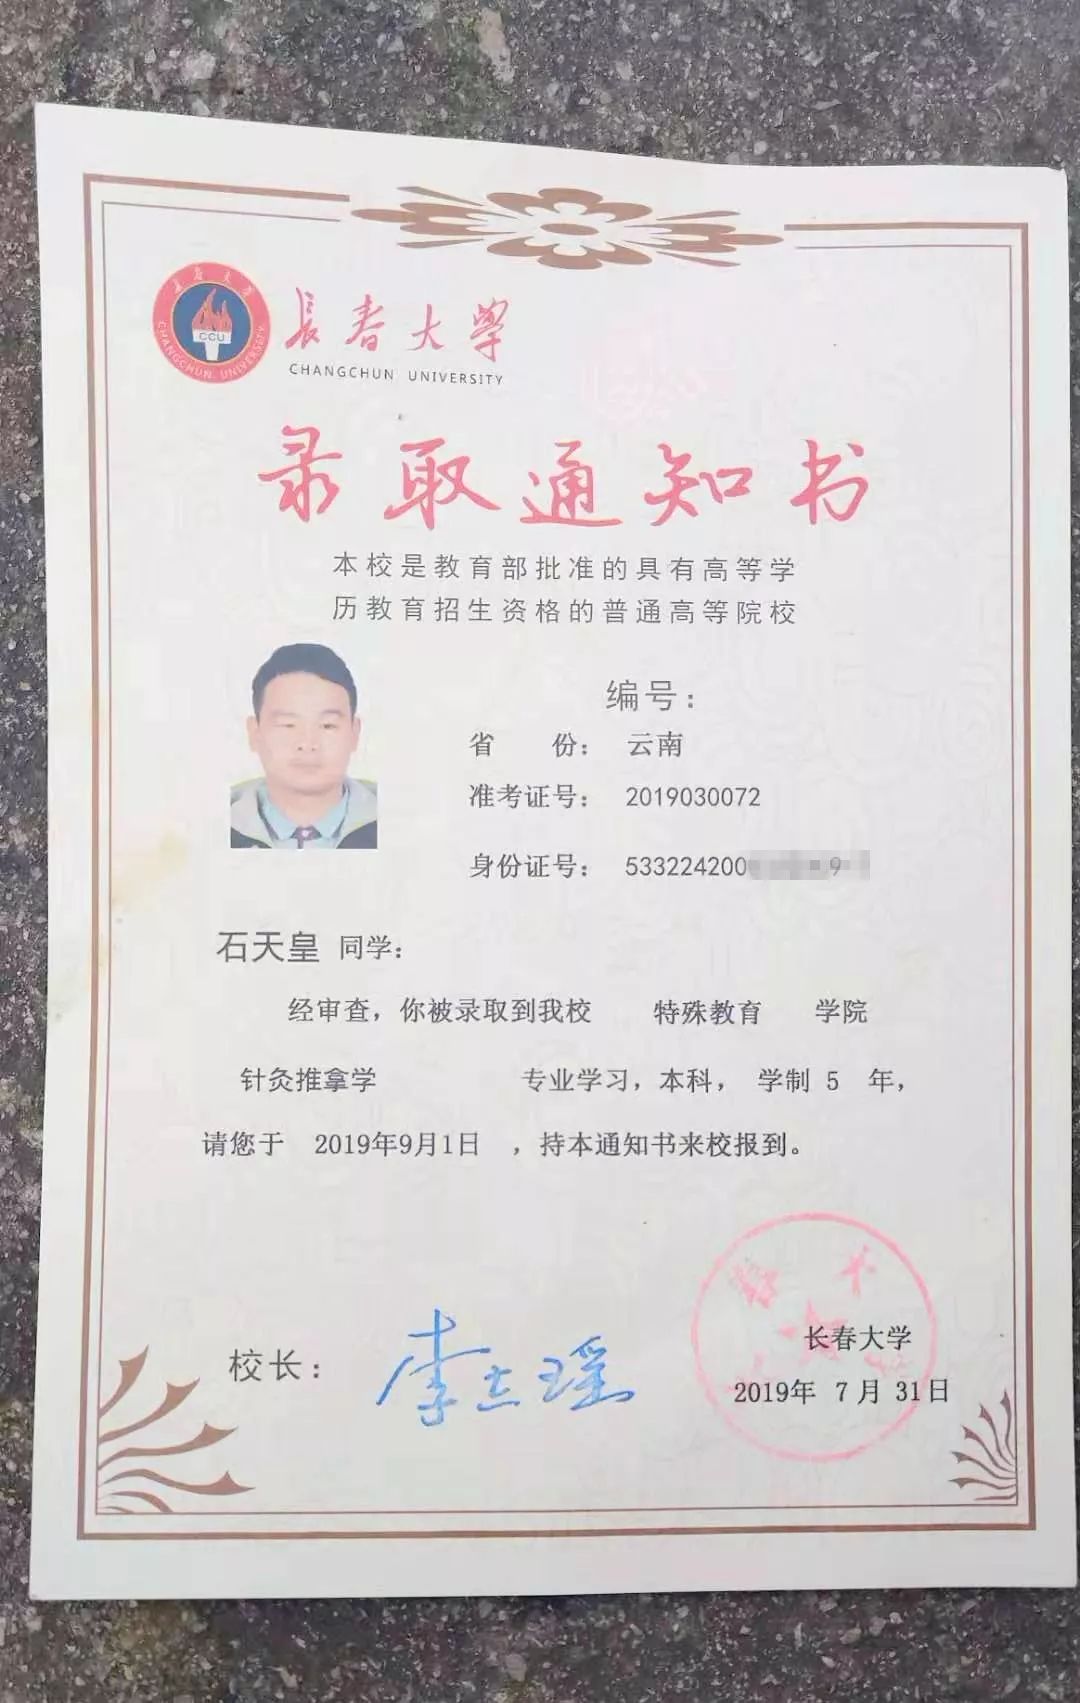 長春大學
CHANGCHUN UNIVERSITY
长春大学
CCU
CHANGCHUN UNIVERSITY
录取通知书
本校是教育部批准的具有高等学
历教育招生资格的普通高等院校
编号：
省 份： 云南
准考证号： 2019030072
身份证号： 533224200 9
石天皇 同学：
经审查，你被录取到我校 特殊教育 学院
针灸推拿学 专业学习，本科， 学制 5 年，
请您于 2019年9月1日 ，持本通知书来校报到。
校长： 李占瑶
长春大学
2019年 7 月 31日